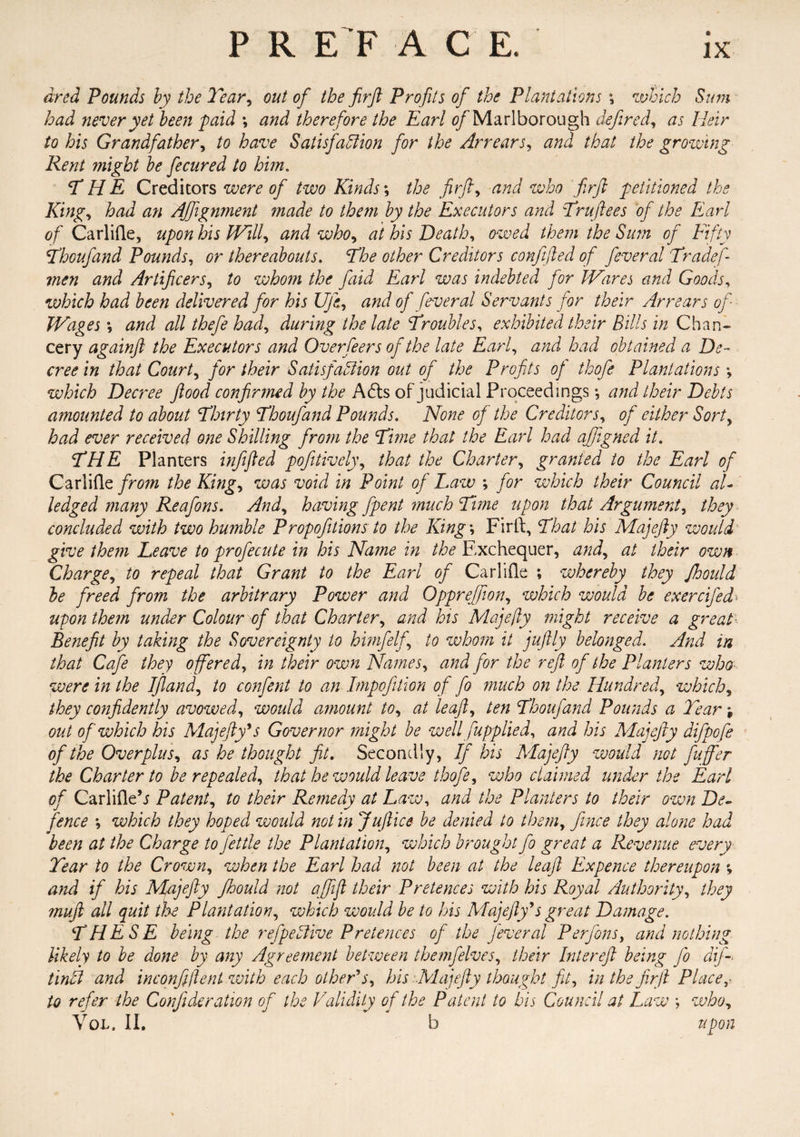 PREFACE. ix
dred Pounds by the Year, out of the firſt Profits of the Plantations ; which Sum
had never yet been paid ; and therefore the Earl of Marlborough deſired, as Heir
to his Grandfather, to have Satisfaction for the Arrears, and that the growing
Rent might be ſecured to him.
THE Creditors were of two Kinds ; the firſt, and who firſt petitioned the
King, had an Aſſignment made to them by the Executors and Truſtees of the Earl
of Carliſle, upon his Will, and who, at his Death, owed them the Sum of Fifty
Thouſand Pounds, or thereabouts. The other Creditors conſiſted of ſeveral Tradeſ-
men and Artificers, to whom the ſaid Earl was indebted for Wares and Goods,
which had been delivered for his Uſe, and of ſeveral Servants for their Arrears of
Wages ; and all theſe had, during the late Troubles, exhibited their Bills in Chan-
cery againſt the Executors and Overſeers of the late Earl, and had obtained a De-
cree in that Court, for their Satisfaction out of the Profits of thoſe Plantations ;
which Decree ſtood confirmed by the Acts of judicial Proceedings ; and their Debts
amounted to about Thirty Thouſand Pounds. None of the Creditors, of either Sort,
had ever received one Shilling from the Time that the Earl had aſſigned it.
THE Planters inſiſted poſitively, that the Charter, granted to the Earl of
Carliſle from the King, was void in Point of Law ; for which their Council al-
ledged many Reaſons. And, having ſpent much Time upon that Argument, they
concluded with two humble Propoſitions to the King ; Firſt, That his Majeſty would
give them Leave to proſecute in his Name in the Exchequer, and, at their own
Charge, to repeal that Grant to the Earl of Carliſle ; whereby they ſhould
be freed from the arbitrary Power and Oppreſſion, which would be exerciſed
upon them under Colour of that Charter, and his Majeſty might receive a great
Benefit by taking the Sovereignty to himſelf, to whom it juſtly belonged. And in
that Caſe they offered, in their own Names, and for the reſt of the Planters who
were in the Iſland, to conſent to an Impoſition of ſo much on the Hundred, which,
they confidently avowed, would amount to, at leaſt, ten Thouſand Pounds a Year ;
out of which his Majeſty's Governor might be well ſupplied, and his Majeſty diſpoſe
of the Overplus, as he thought fit. Secondly, If his Majeſty would not ſuffer
the Charter to be repealed, that he would leave thoſe, who claimed under the Earl
of Carliſle's Patent, to their Remedy at Law, and the Planters to their own De-
fence ; which they hoped would not in Juſtice be denied to them, ſince they alone had
been at the Charge to ſettle the Plantation, which brought ſo great a Revenue every
Year to the Crown, when the Earl had not been at the leaſt Expence thereupon ;
and if his Majeſty ſhould not aſſiſt their Pretences with his Royal Authority, they
muſt all quit the Plantation, which would be to his Majeſty's great Damage.
THESE being the reſpective Pretences of the ſeveral Perſons, and nothing
likely to be done by any Agreement between themſelves, their Intereſt being ſo diſ-
tinct and inconſiſtent with each other's, his Majeſty thought fit, in the firſt Place,
to refer the Conſideration of the Validity of the Patent to his Council at Law ; who,
VOL. II. b upon